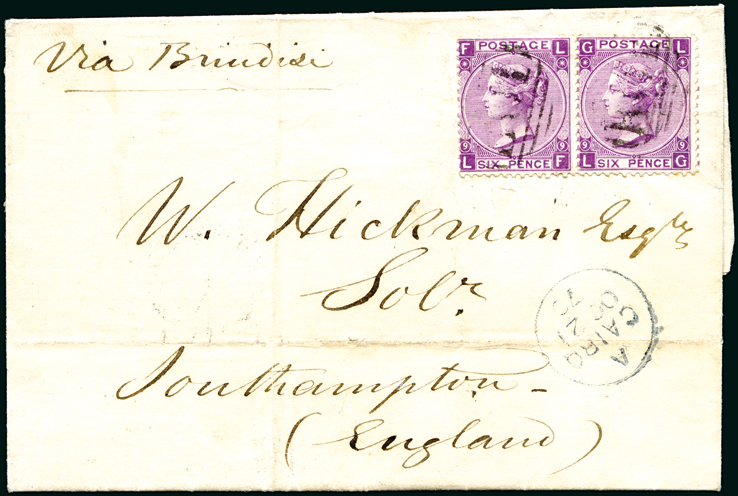 Via Brindisi
F POSTAGE L
9 9
L SIX PENCE F
G POSTAGE L
9 9
L SIX PENCE G
W. Hickman Esqre
Solr.
Southampton -
(England)
A
CAIRO